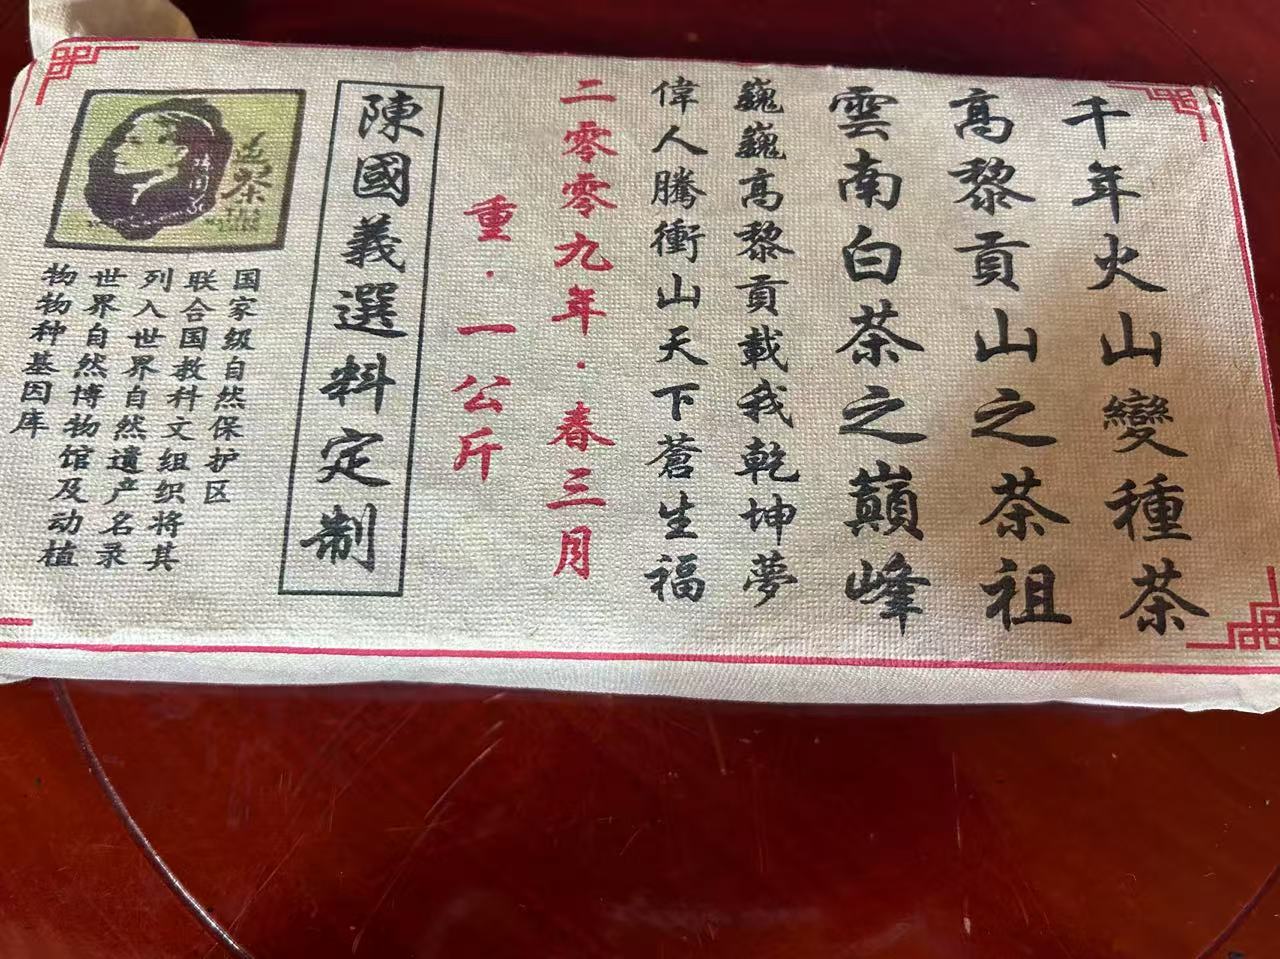 千年火山變種茶
高黎貢山之茶祖
雲南白茶之巔峰
巍巍高黎貢載我乾坤夢
偉人騰衝山天下蒼生福
二零零九年·春三月
重·一公斤
陳國義選料定制
国家级自然保护区
联合国教科文组织将其
列入世界自然遗产名录
世界自然博物馆及动植
物物种基因库
茶